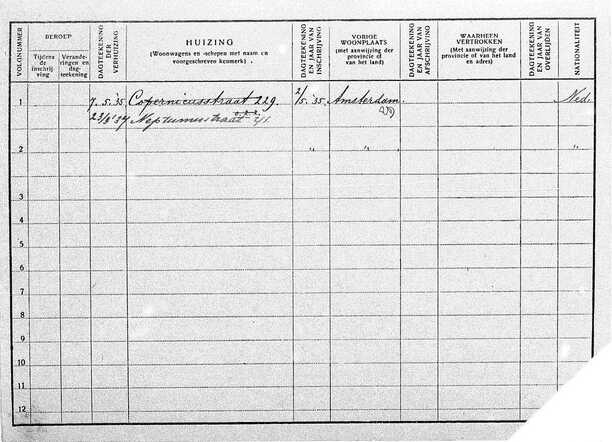 VOLGNUMMER
BEROEP
Tijdens de inschrijving
Veranderingen en dagteekening
DAGTEEKENING DER VERHUIZING
HUIZING
(Woonwagens en -schepen met naam en voorgeschreven kenmerk).
DAGTEEKENING EN JAAR VAN INSCHRIJVING
VORIGE WOONPLAATS
(Met aanwijzing der provincie of van het land)
DAGTEEKENING EN JAAR VAN AFSCHRIJVING
WAARHEEN VERTROKKEN
(Met aanwijzing der provincie of van het land en adres)
DAGTEEKENING EN JAAR VAN OVERLIJDEN
NATIONALITEIT
1 7.5.'35 Copernicusstraat 229. 2/5.'35 Amsterdam. Ned.
Neptunusstraat
2 " " "
3
4
5
6
7
8
9
10
11
12